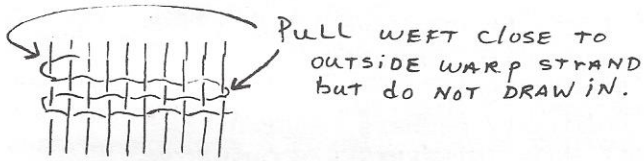 PULL WEFT CLOSE TO
OUTSIDE WARP STRAND
but do NOT DRAW IN.